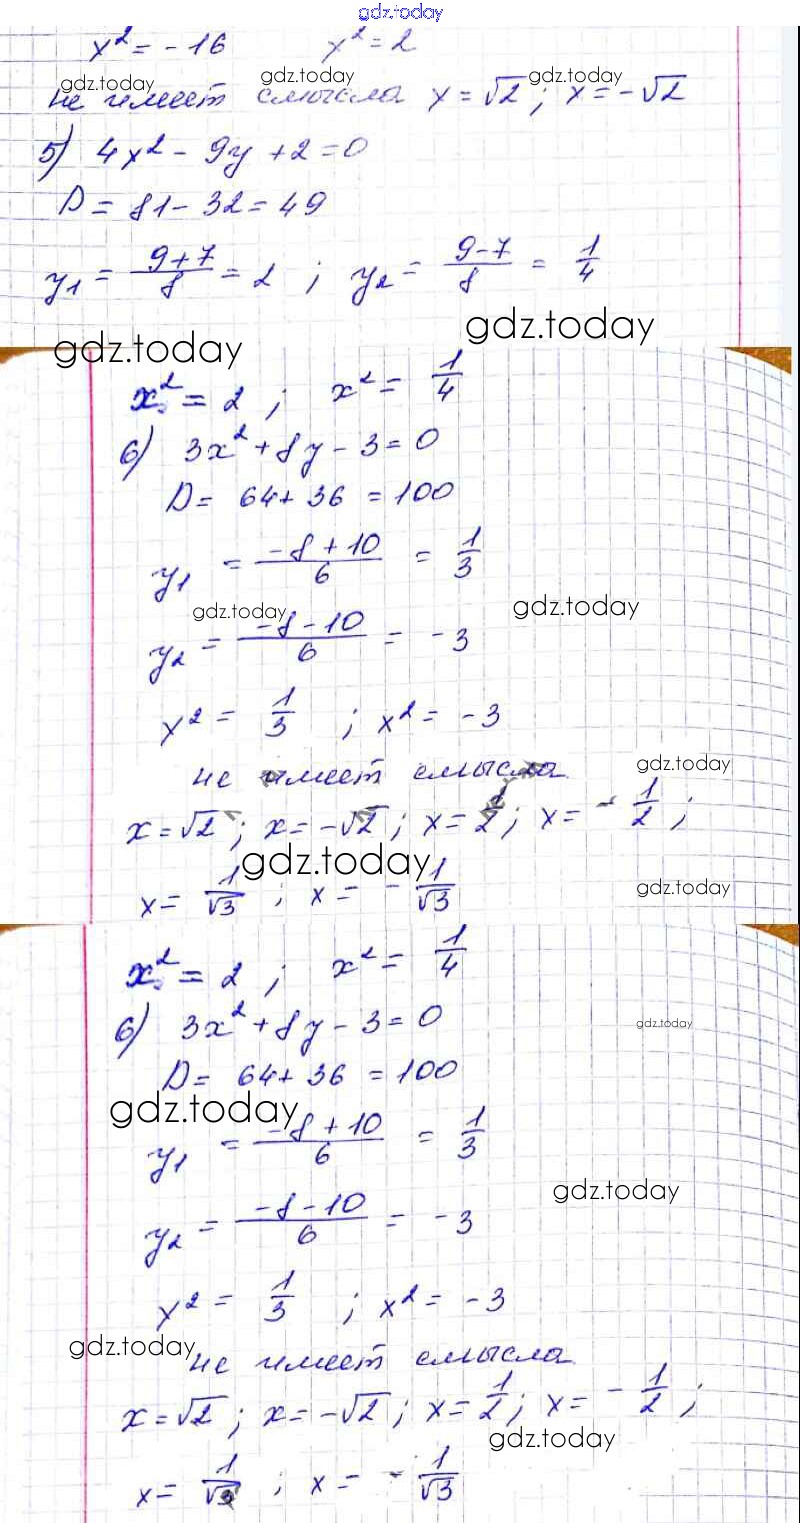 gdz.today
x² = -16 x² = 2
gdz.today gdz.today gdz.today
не имеет смысла x = √2 ; x = -√2
5) 4x² - 9y + 2 = 0
D = 81 - 32 = 49
y₁ = (9+7)/8 = 2 ; y₂ = (9-7)/8 = 1/4
gdz.today gdz.today
x² = 2 ; x² = 1/4
6) 3x² + 8y - 3 = 0
D = 64 + 36 = 100
y₁ = (-8+10)/6 = 1/3
gdz.today gdz.today
y₂ = (-8-10)/6 = -3
x² = 1/3 ; x² = -3
не имеет смысла gdz.today
x = √2 ; x = -√2 ; x = 1/2 ; x = -1/2 ;
gdz.today gdz.today
x = 1/√3 ; x = -1/√3
x² = 2 ; x² = 1/4
6) 3x² + 8y - 3 = 0 gdz.today
D = 64 + 36 = 100
gdz.today
y₁ = (-8+10)/6 = 1/3
gdz.today
y₂ = (-8-10)/6 = -3
x² = 1/3 ; x² = -3
gdz.today
не имеет смысла
x = √2 ; x = -√2 ; x = 1/2 ; x = -1/2 ;
gdz.today
x = 1/√3 ; x = -1/√3